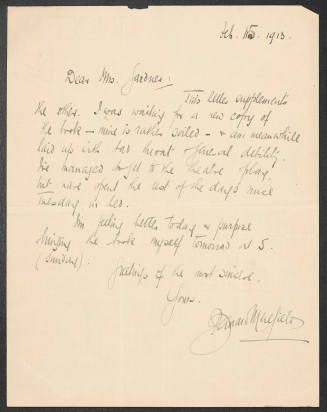 Feb. 1913.
Dear Mrs. Gardner:
This letter supplements
the other. I was waiting for a new copy of
the book – mine is rather soiled – & am meanwhile
laid up with bad throat & general debility.
I've managed to get to the theatre & play.
but have spent the rest of the days since
Tuesday in bed.
I'm feeling better today & purpose
bringing the book myself tomorrow at 5.
(Sunday).
Greetings of the most sincere.
Yours.